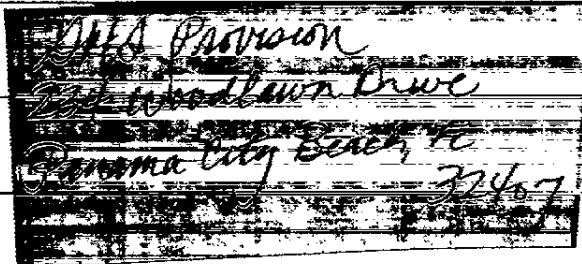 Provision
Woodlawn Drive
Panama City Beach, FL
32407